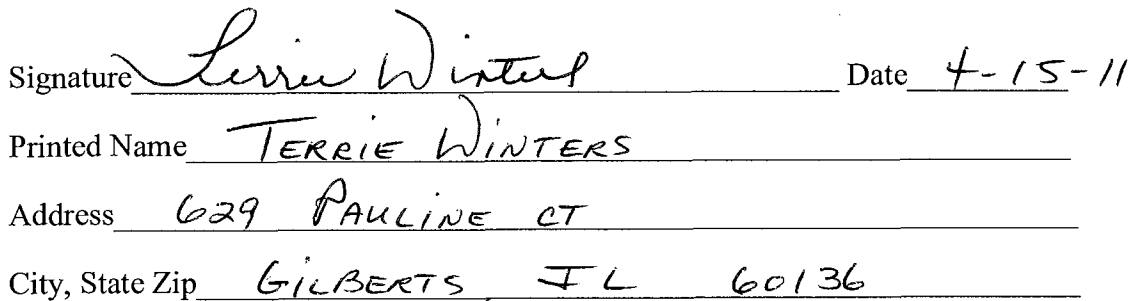 Signature Terrie Winters Date 4-15-11
Printed Name TERRIE WINTERS
Address 629 PAULINE CT
City, State Zip GILBERTS IL 60136